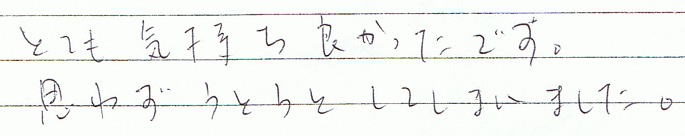 とても気持ち良かったです。
思わずうとうとしてしまいました。